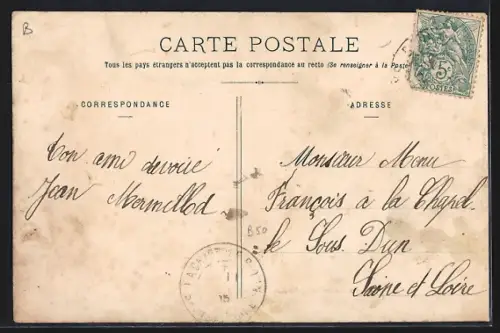 B
CARTE POSTALE
Tous les pays étrangers n'acceptent pas la correspondance au recto (Se renseigner à la Poste)
CORRESPONDANCE
ADRESSE
5c
POSTES
Ton ami devoué
Jean Mermillod
Monsieur Menu
François à la Chapel-
le Sous Dun
Saone et Loire
B50